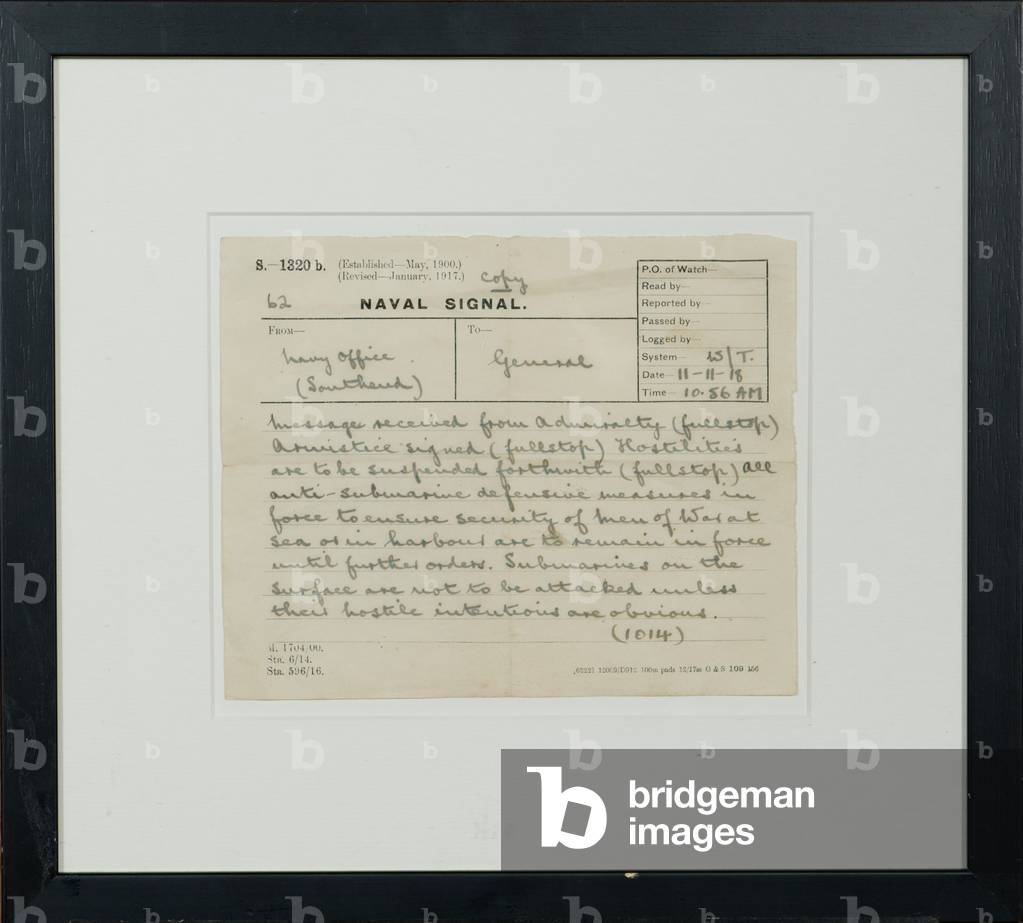 S.—1320 b.
(Established—May, 1900.)
(Revised—January, 1917.)
Copy
62
NAVAL SIGNAL.
P.O. of Watch—
Read by—
Reported by—
Passed by—
Logged by—
System— W/T.
Date— 11-11-18
Time— 10.56 AM
From—
Navy Office.
(Southend)
To—
General
Message received from Admiralty (fullstop)
Armistice signed (fullstop) Hostilities
are to be suspended forthwith (fullstop) All
anti-submarine defensive measures in
force to ensure security of Men of War at
sea or in harbour are to remain in force
until further orders. Submarines on the
surface are not to be attacked unless
their hostile intentions are obvious.
(1014)
M. 1704/00.
Sta. 6/14.
Sta. 596/16.
100m pads 12/17 G & S 109
bridgeman
images